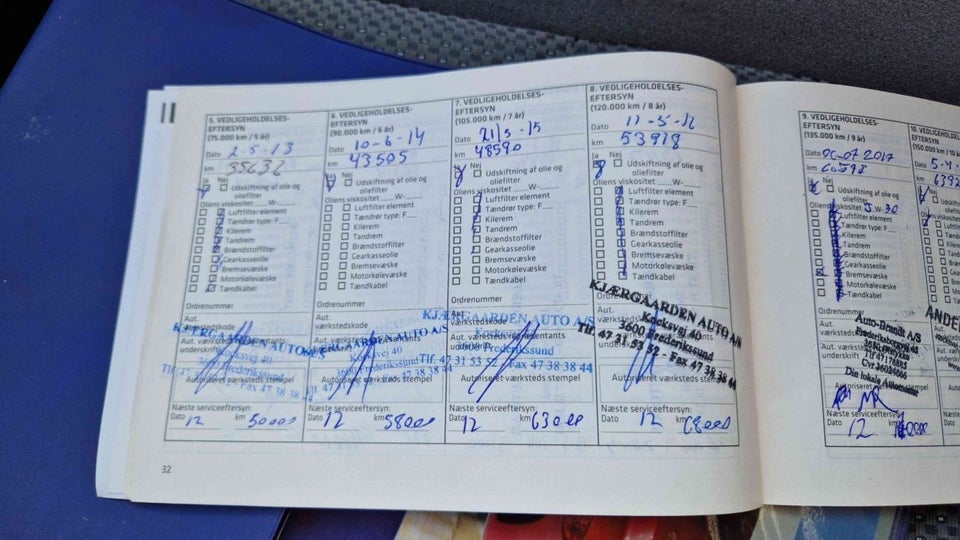 5. VEDLIGEHOLDELSES-
EFTERSYN
(75.000 km / 5 år)
Dato 2-5-13
km 35632
Ja Nej
Udskiftning af olie og
oliefilter
Oliens viskositet ___W-___
Luftfilter element
Tændrør type: F___
Kilerem
Tandrem
Brændstoffilter
Gearkasseolie
Bremsevæske
Motorkølevæske
Tændkabel
Ordrenummer
Aut.
værkstedskode
KJÆRGAARDEN AUTO A/S
Kocksvej 40
3600 Frederikssund
Autoriseret værksteds stempel
Næste serviceeftersyn:
Dato 12 km 50000
6. VEDLIGEHOLDELSES-
EFTERSYN
(90.000 km / 6 år)
Dato 10-6-14
km 43505
Ja Nej
Udskiftning af olie og
oliefilter
Oliens viskositet ___W-___
Luftfilter element
Tændrør type: F___
Kilerem
Tandrem
Brændstoffilter
Gearkasseolie
Bremsevæske
Motorkølevæske
Tændkabel
Ordrenummer
Aut.
værkstedskode
KJÆRGAARDEN AUTO A/S
Kocksvej 40
3600 Frederikssund
Autoriseret værksteds stempel
Næste serviceeftersyn:
Dato 12 km 58000
7. VEDLIGEHOLDELSES-
EFTERSYN
(105.000 km / 7 år)
Dato 21/5-15
km 48590
Ja Nej
Udskiftning af olie og
oliefilter
Oliens viskositet ___W-___
Luftfilter element
Tændrør type: F___
Kilerem
Tandrem
Brændstoffilter
Gearkasseolie
Bremsevæske
Motorkølevæske
Tændkabel
Ordrenummer
Aut.
værkstedskode
KJÆRGAARDEN AUTO A/S
Kocksvej 40
3600 Frederikssund
Tlf. 47 31 53 52 - Fax 47 38 38 44
Autoriseret værksteds stempel
Næste serviceeftersyn:
Dato 12 km 63000
8. VEDLIGEHOLDELSES-
EFTERSYN
(120.000 km / 8 år)
Dato 11-5-16
km 53978
Ja Nej
Udskiftning af olie og
oliefilter
Oliens viskositet ___W-___
Luftfilter element
Tændrør type: F___
Kilerem
Tandrem
Brændstoffilter
Gearkasseolie
Bremsevæske
Motorkølevæske
Tændkabel
Ordrenummer
KJÆRGAARDEN AUTO A/S
Kocksvej 40
3600 Frederikssund
Tlf. 47 31 53 52 - Fax 47 38 38 44
Autoriseret værksteds stempel
Næste serviceeftersyn:
Dato 12 km 68000
32
9. VEDLIGEHOLDELSES-
EFTERSYN
(135.000 km / 9 år)
Dato 06-07 2017
km
Ja Nej
Udskiftning af olie og
oliefilter
Oliens viskositet 5 W-30
Luftfilter element
Tændrør type: F
Kilerem
Tandrem
Brændstoffilter
Gearkasseolie
Bremsevæske
Motorkølevæske
Tændkabel
Ordrenummer
Aut.
Auto-Brandt A/S
Din lokale
Næste serviceeftersyn:
Dato 12 km
10. VEDLIGEHOLDELSES-
EFTERSYN
(150.000 km
Dato 5-4
km 6392
Ja Nej